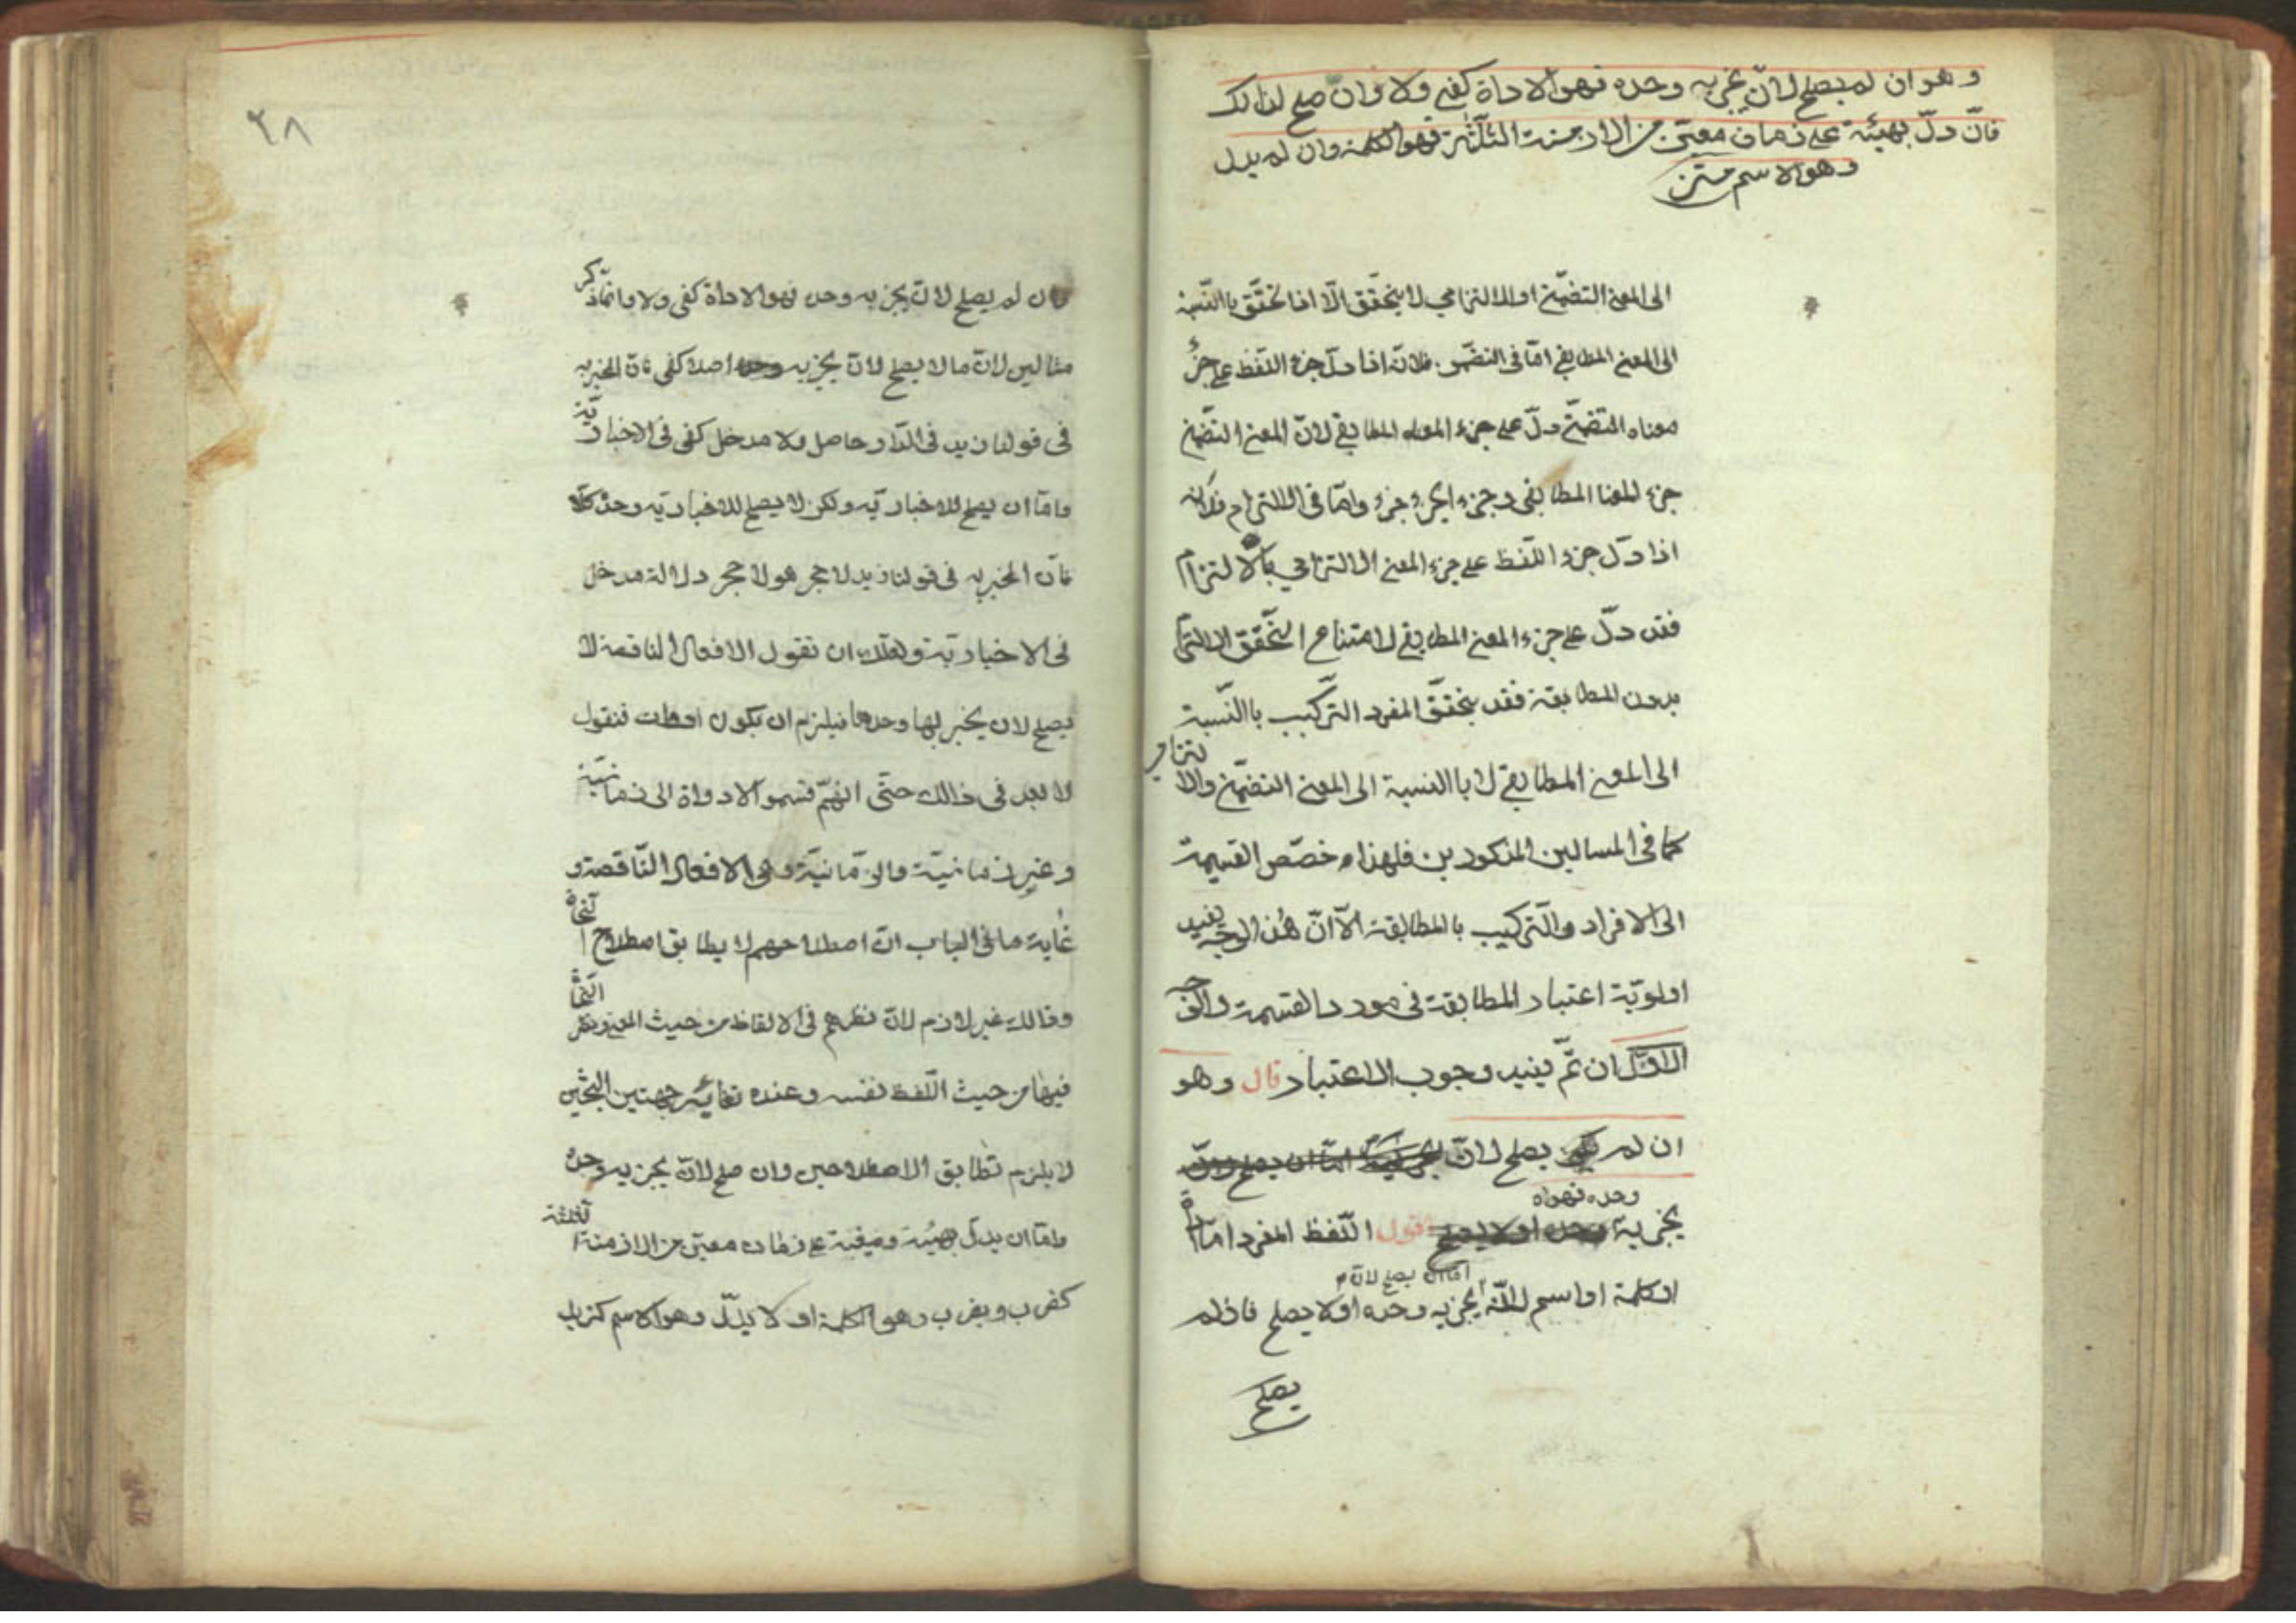 وهو ان لم يصلح لانّ يخبر به وحده فهو الاداة كفى ولا وان صلح لذالك
فانّ دلّ بهيئة على زمان معيّن من الازمنة الثلثة فهو الكلمة وان لم يدل
وهو الاسم متن
الى المعنى التضمّنى او الالتزامي لا يتحقّق الّا اذا تحقّق باالنّسبة
الى المعنى المطابقى امّا فى التضمّن فلانّه اذا دلّ جزء اللّفظ على جزء
معناه التضمّنى دلّ على جزء المعناه المطابقى لانّ المعنى التضمّنى
جزء المعنا المطابقى وجزء الجزء جزء وامّا فى الالتزام فلانّه
اذا دلّ جزء اللّفظ على جزء المعنى الالتزامي باالالتزام
فقد دلّ على جزء المعنى المطابقى لامتناع التحقّق الالتزام
بدون المطابقة فقد يتحقّق المفرد التّركيب باالنّسبة
الى المعنى المطابقى لا باالنسبة الى المعنى التضمّنى والالتزامي
كما فى المسالين المذكورين فلهذا خصّص القسيمة
الى الافراد والتّركيب باالمطابقة الّا انّ هذا الوجه يفيد
اولويّة اعتبار المطابقة فى مورد القسمة والوجه
الاوّل ان تمّ يفيد وجوب الاعتبار قال وهو
ان لم يصلح لانّ
يخبر به وحده فهو اداة اقول اللّفظ المفرد امّا
او كلمة او اسم لانّه امّا ان يصلح لانّ يخبر به وحده او لا يصلح فان لم
يصلح
٢٨
فان لم يصلح لانّ يخبر به وحده فهو الاداة كفى ولا وانّما ذكر
مثالين لانّ ما لا يصلح لانّ يخبر به وحده اصلا كفى فانّ المخبر به
فى قولنا زيد فى الدّار حاصل ولا مدخل كفى فى الاخباريّة
وامّا ان يصلح للاخباريّة ولكن لا يصلح للاخباريّة وحده كلا
فانّ المخبر به فى قولنا زيد لا حجر هو لا حجر دلالة مدخل
فى الاخباريّة ولعلّك ان تقول الافعال الناقصة لا
يصلح لان يخبر بها وحدها فيلزم ان يكون ادوات فنقول
لا بعد فى ذالك حتّى انّهم قسموا الادواة الى زمانيّة
وغير زمانيّة والزّمانيّة وهى الافعال النّاقصة و
غاية ما فى الباب انّ اصطلاحهم لا يطابق اصطلاح النحاة
وذالك غير لازم لانّ نظرهم فى الالفاظ من حيث المعنى ونظر النّحاة
فيها من حيث اللّفظ نفسه وعنده تغائر جهتين البحثين
لا يلزم تطابق الاصطلاحين وان صلح لانّ يخبر به وحده
وامّا ان يدلّ بهيئة وصيغته على زمان معيّن من الازمنة الثلثة
كضرب ويضرب وهو الكلمة او لا يدلّ وهو الاسم كزيد